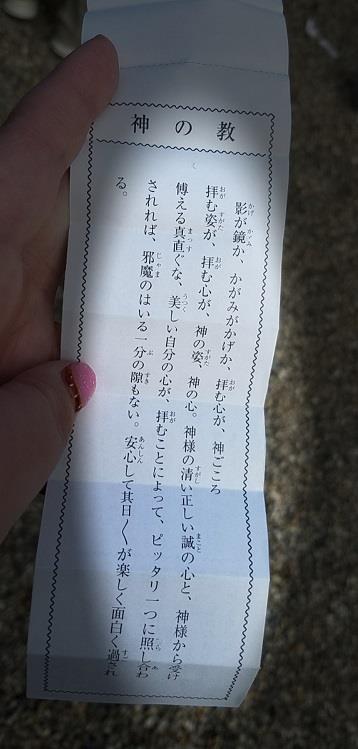 神の教
影が鏡か、かがみがかげか、拝む心が、神ごころ
拝む姿が、拝む心が、神の姿、神の心。神様の清い正しい誠の心と、神様から受け
傅える真直ぐな、美しい自分の心が、拝むことによって、ピッタリ一つに照し合わ
されれば、邪魔のはいる一分の隙もない。安心して其日〱が楽しく面白く過され
る。